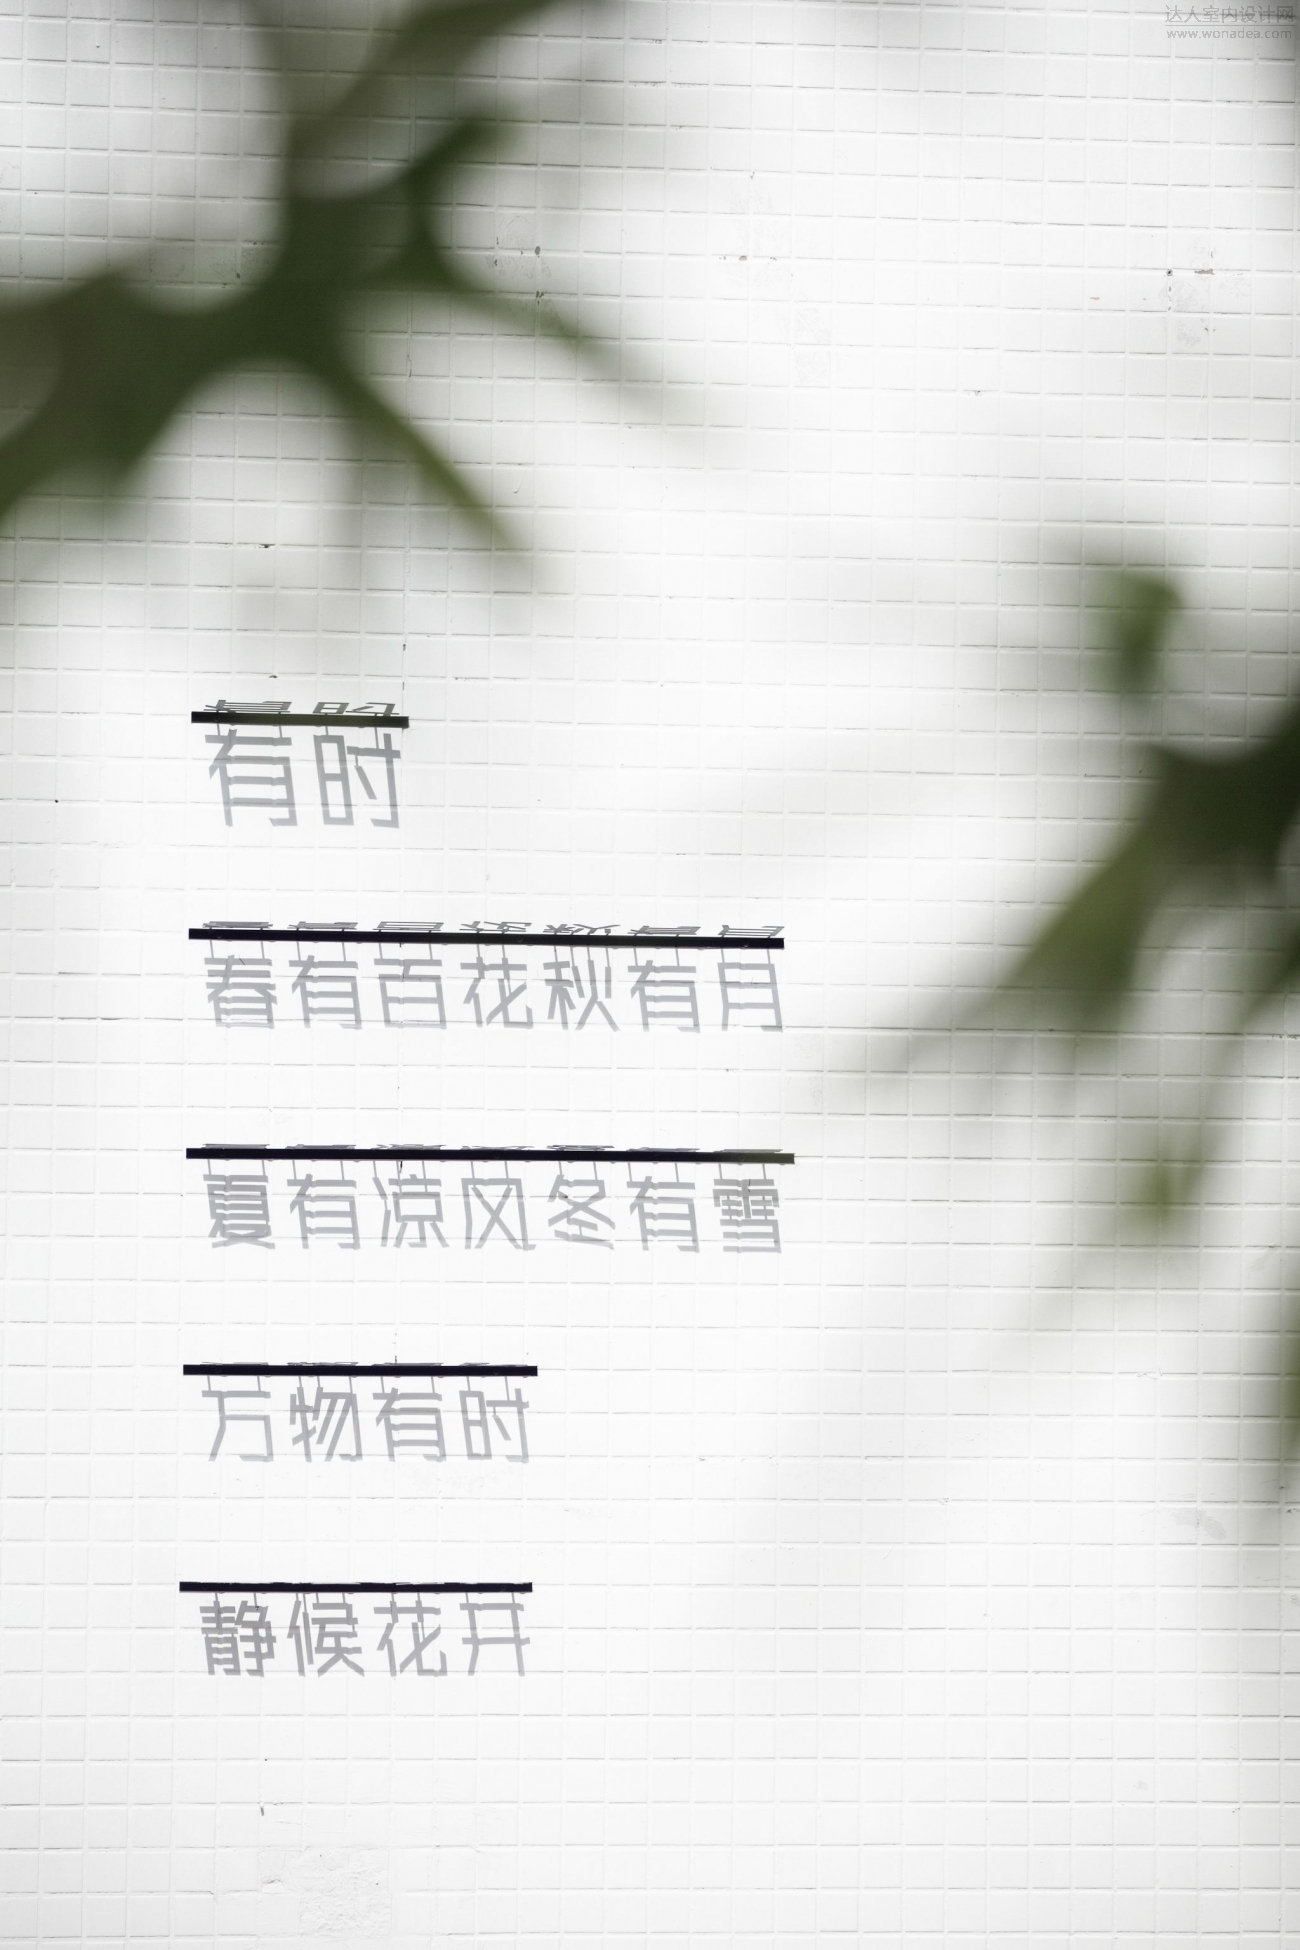 达人室内设计网
www.wonadea.com
有时
春有百花秋有月
夏有凉风冬有雪
万物有时
静候花开